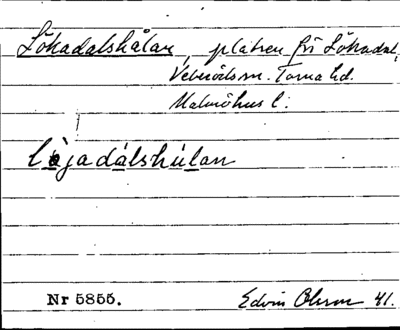 Lökadalshålan, platsen fr Lökadal,
Veberöds sn. Torna hd.
Malmöhus l.
löjadálshúlan
Nr 5855. Edvin Ohlsson 41.